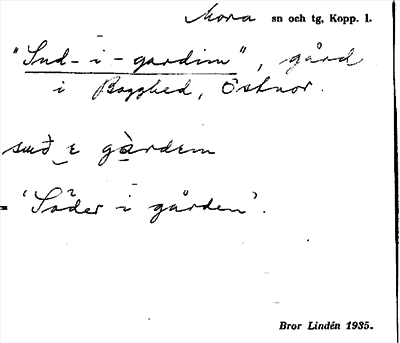 Mora sn och tg, Kopp. l.
"Sud-i-gardim", gård
i Bogghed, Östnor.
suð ı gàrdem
= 'Söder i gården'.
Bror Lindén 1935.